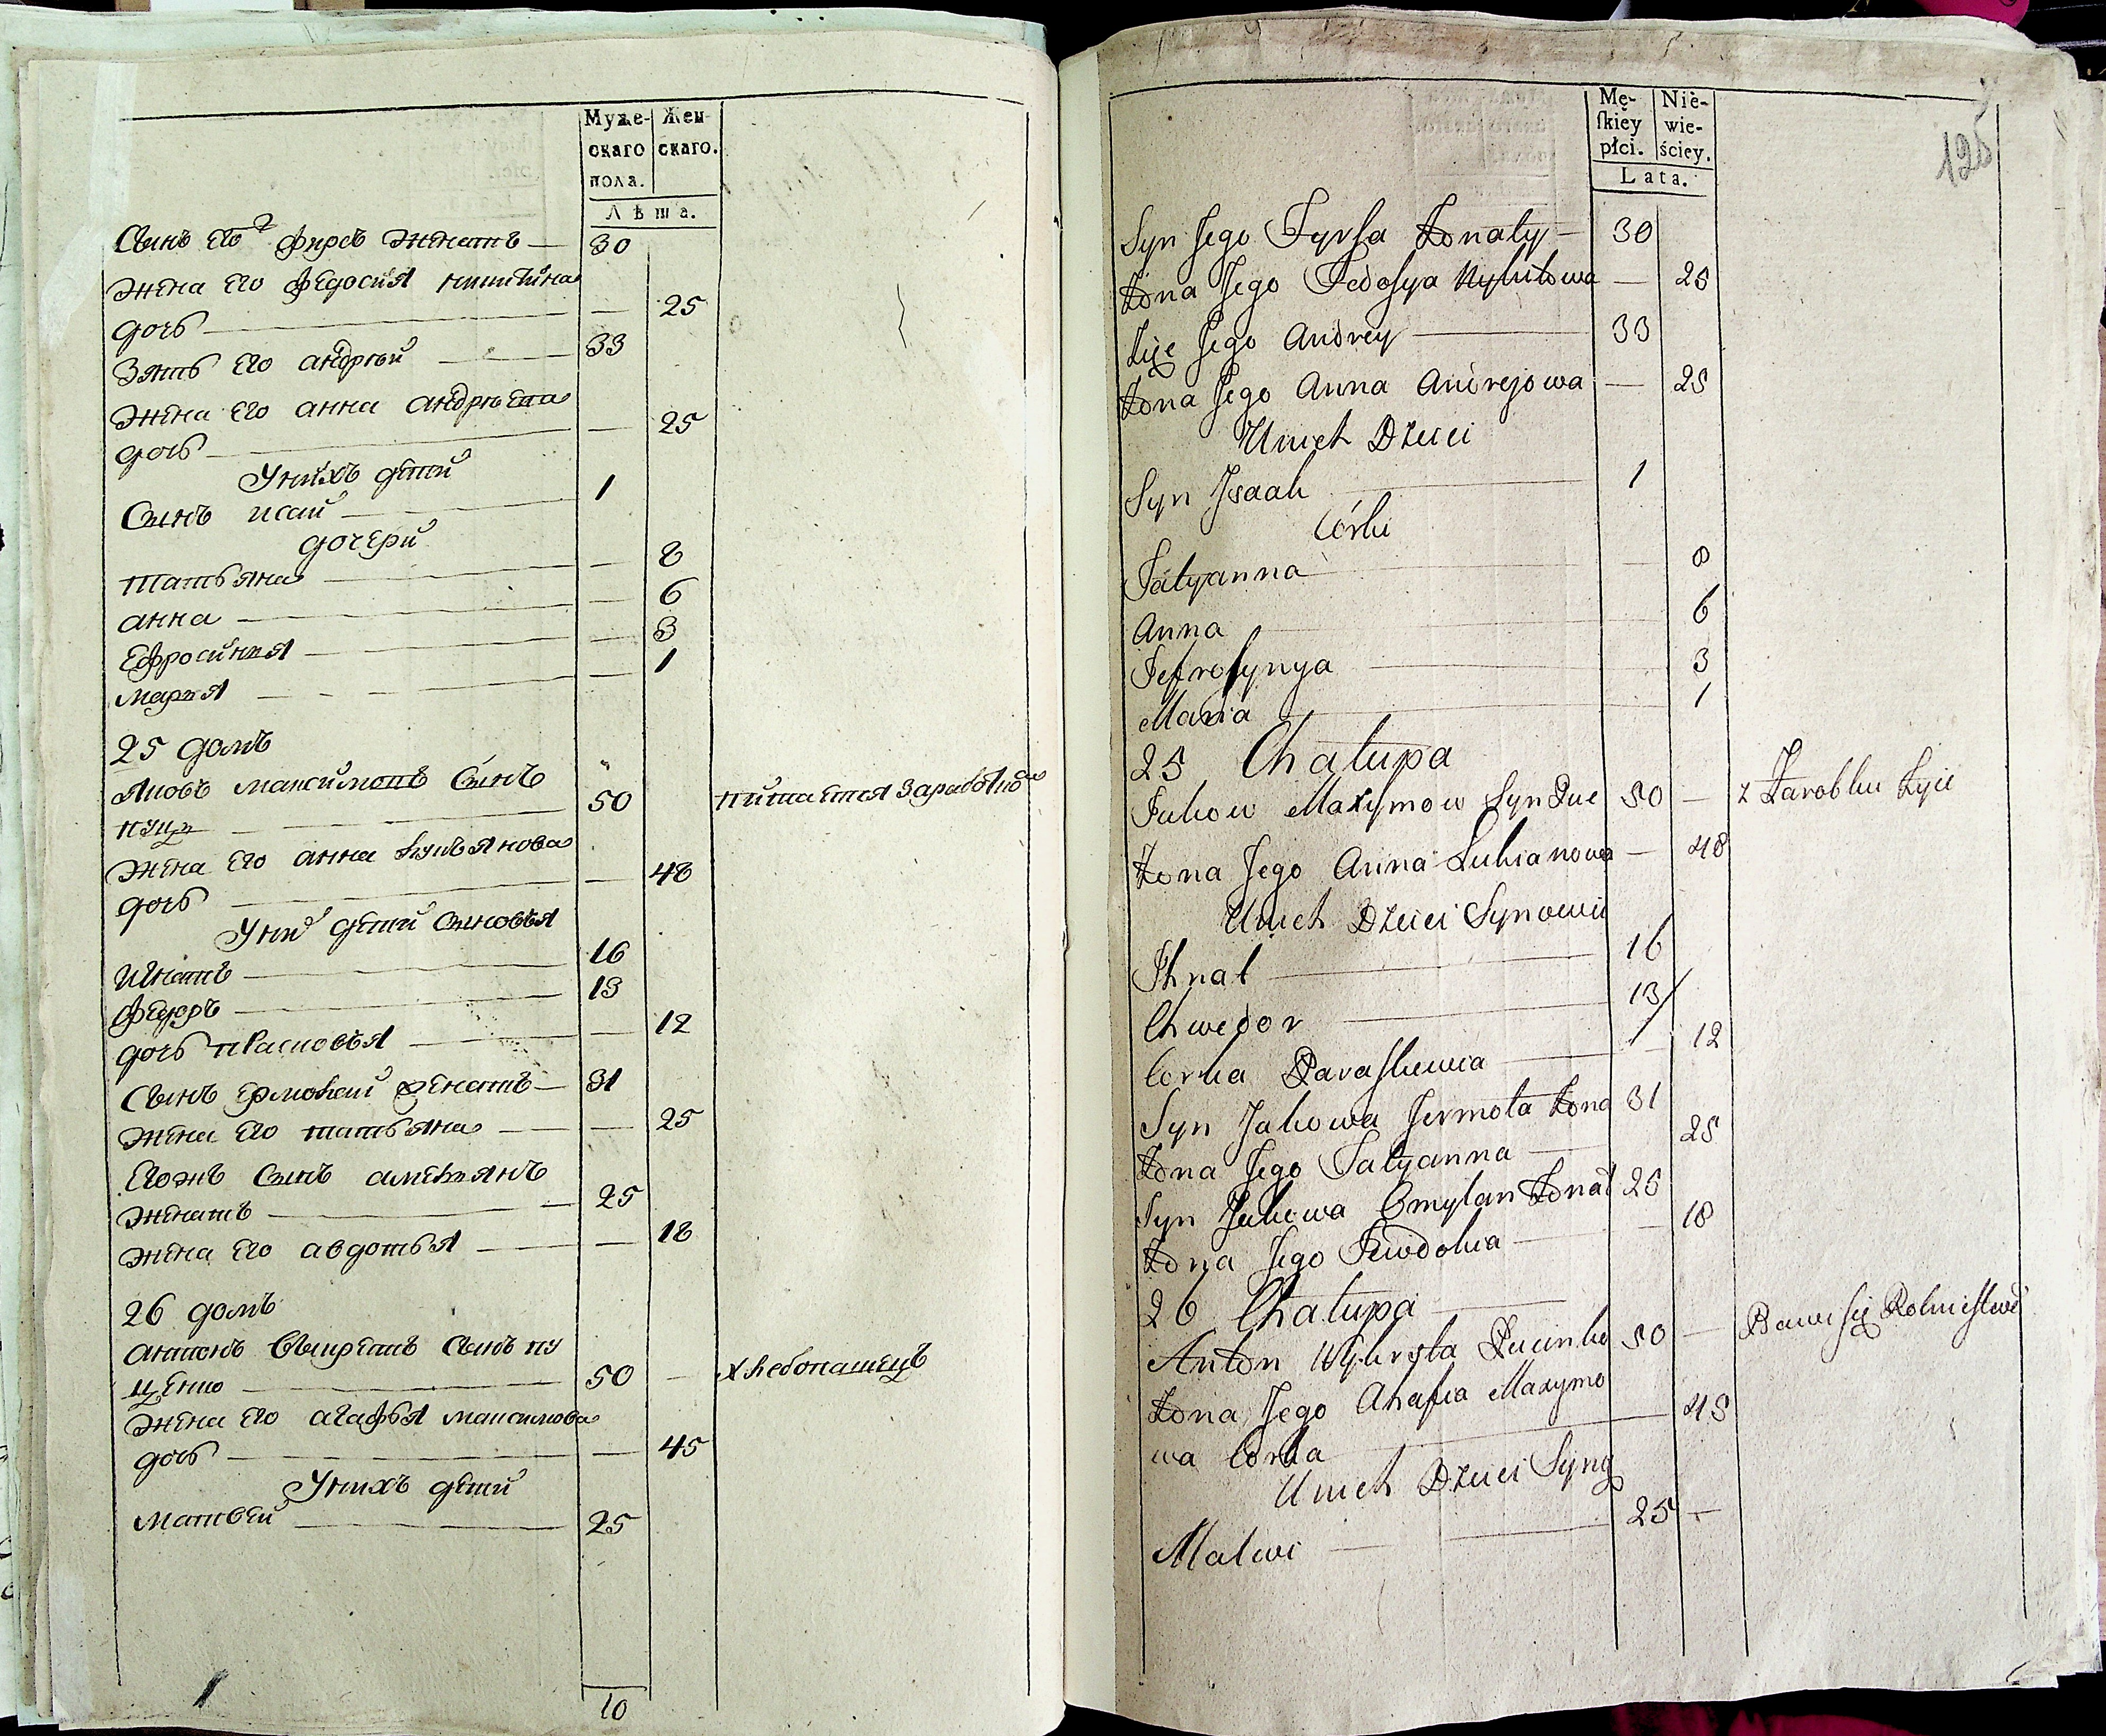 Муже-
скаго
пола.
Жен-
скаго.
Лѣта.
Сынъ Его Фирсъ женатъ — 30
жена Его Федосия Никитина
дочь — 25
Зять Его андрѣй — 33
жена Его анна андрѣева
дочь — 25
У нихъ дѣти
Сынъ исай — 1
дочери
татьяна — 8
анна — 6
Ефросинья — 3
марья — 1
25 домъ
Яковъ максимовъ Сынъ
50 питается Заработкo
жена Его анна лукьянова
дочь — 48
У ни дѣти Сыновья
Игнатъ — 16
Федоръ — 13
дочь прасковья — 12
Сынъ Ермолай женатъ — 31
жена Его татьяна — 25
Егожъ Сынъ амельянъ
женатъ — 25
жена Его авдотья — 18
26 домъ
антонъ Сынъ ку
ценко — 50 — хлебопашецъ
жена Его агафья максимова
дочь — 45
У нихъ дѣти
Матвей — 25
10
125
Mę-
ſkiey
płci.
Nie-
wie-
ściey.
Lata.
Syn Jego Fyrsa Żonaty — 30
Żona Jego Fedosya Nykitowa — 25
Zięc Jego Andrey — 33
Żona Jego Anna Andrejowa — 25
U nich Dzieci
Syn Isaak — 1
Córki
Tatyanna — 8
Anna — 6
Jefrosynya — 3
Maria — 1
25 Chałupa
Jakow Maxymow Syn 50 — z Zarobku Żyie
Żona Jego Anna Lukianowa — 48
U nich Dzieci Synowie
Ihnat — 16
Chwedor — 13
Corka Paraskewia — 12
Syn Jakowa Jermoła Żona 31
Żona Jego Tatyanna — 25
Syn Jakowa Omylan Żonat 25
Żona Jego — 18
26 Chałupa
Anton 50 — Bawi się Rolnictwe
Żona Jego Ahafia Maxymo
wa Corka — 45
U nich Dzieci Syny
Matwi — 25 —